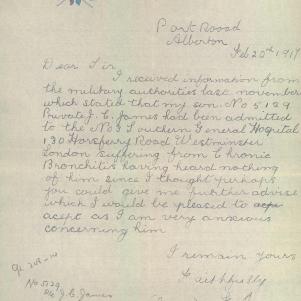 Port Road
Alberton
Feb 20th 1917
Dear Sir,
I received information from
the military authorities last november
which stated that my son No 5129
Private J. C. James had been admitted
to the No 3 Southern General Hospital
130 Horseferry Road Westminster
London suffering from Chronic
Bronchitis having heard nothing
of him since I thought perhaps
you could give me further advise
which I would be pleased to
acept as I am very anxious
concerning him
I remain Yours
Faithfully
No 5129
Pte J. C. James